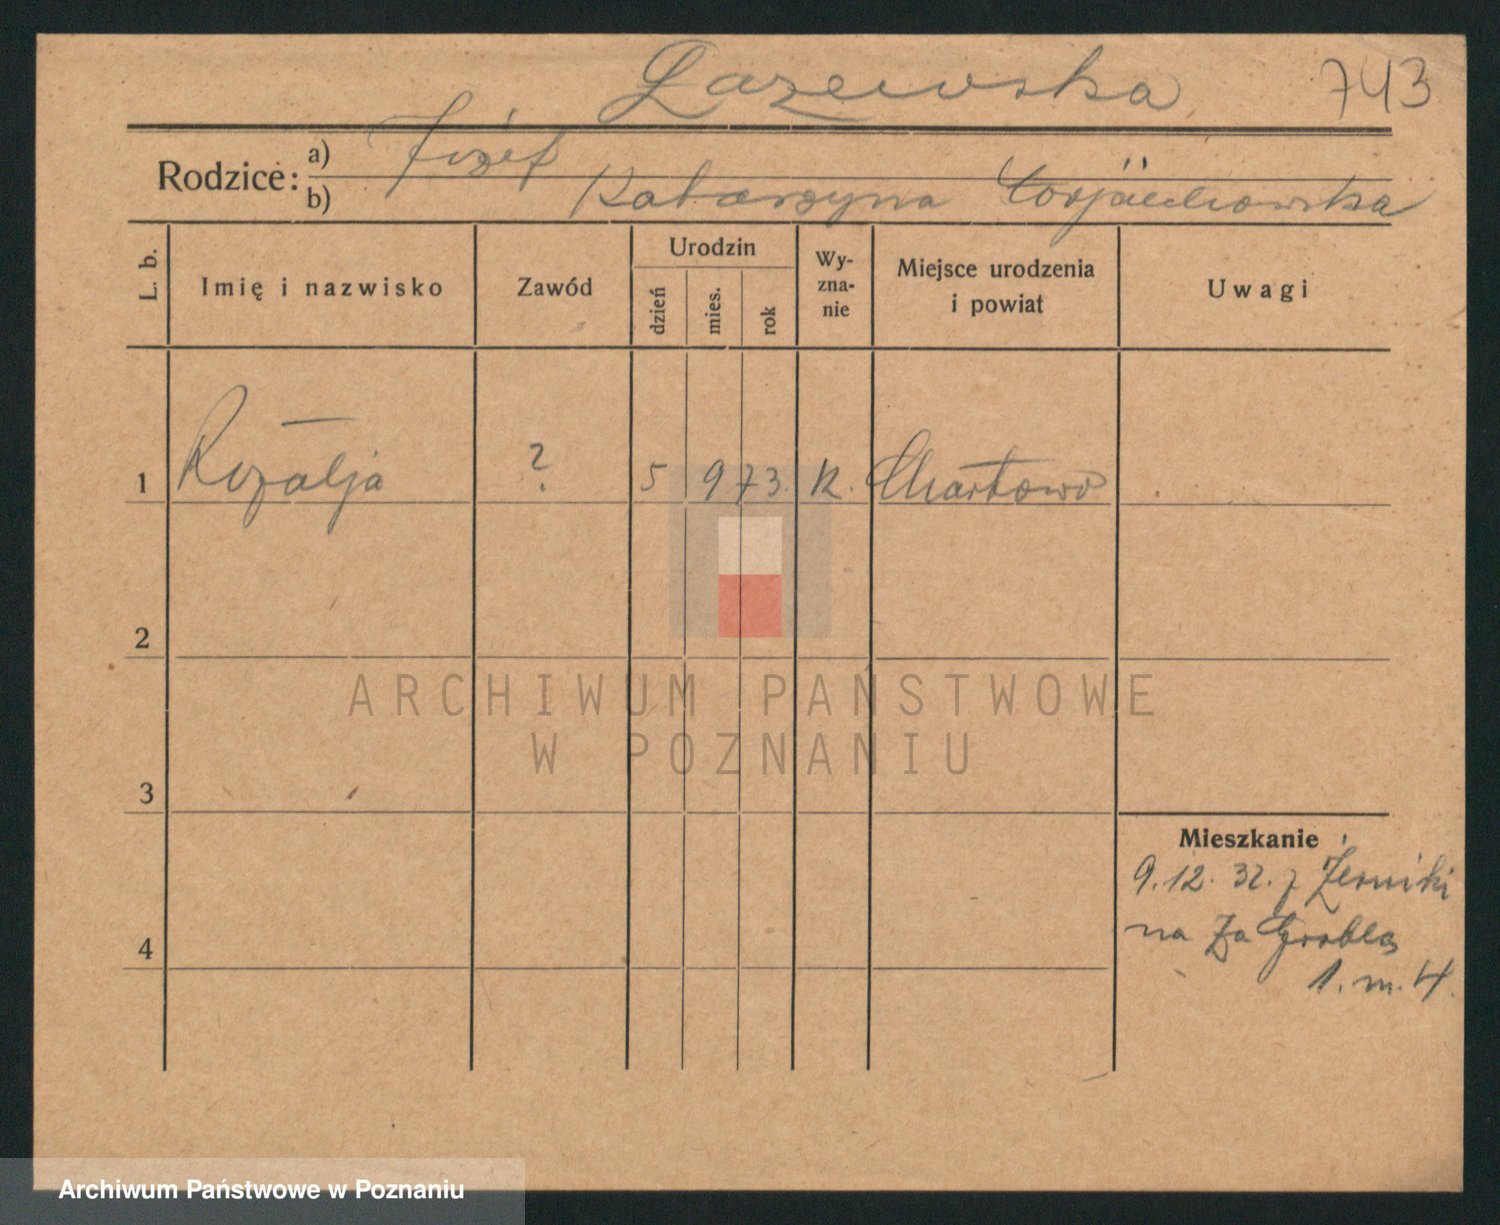 Łazewska 743
Rodzice: a) Józef
b) Katarzyna
L. b.
Imię i nazwisko
Zawód
Urodzin
dzień
mies.
rok
Wy-
zna-
nie
Miejsce urodzenia
i powiat
Uwagi
1 Rozalja ? 5 9 73. K. Chartowo
2
3
4
Mieszkanie
9.12.32. z Żerniki
na Za Groblą
1. m. 4.
ARCHIWUM PAŃSTWOWE
W POZNANIU
Archiwum Państwowe w Poznaniu